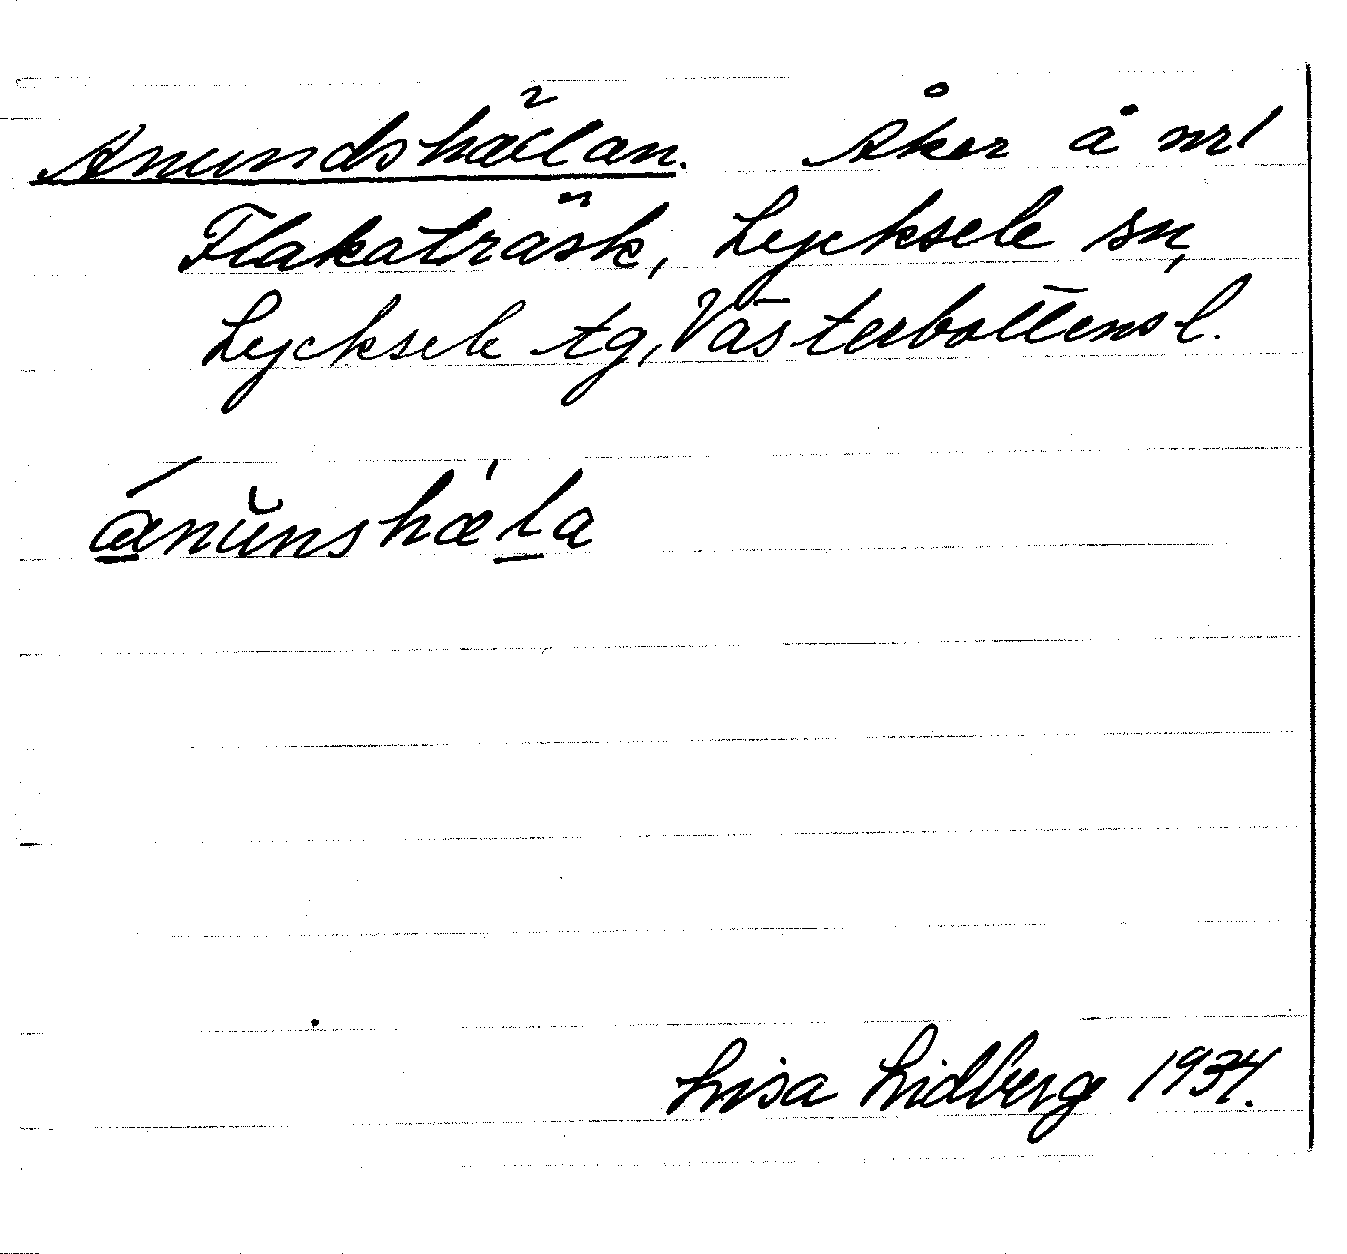 Anundshällan. Åker å nr 1
Flakaträsk, Lycksele sn,
Lycksele tg, Västerbottens l.
ánŭnshæ̀la
Lisa Lidberg 1934.